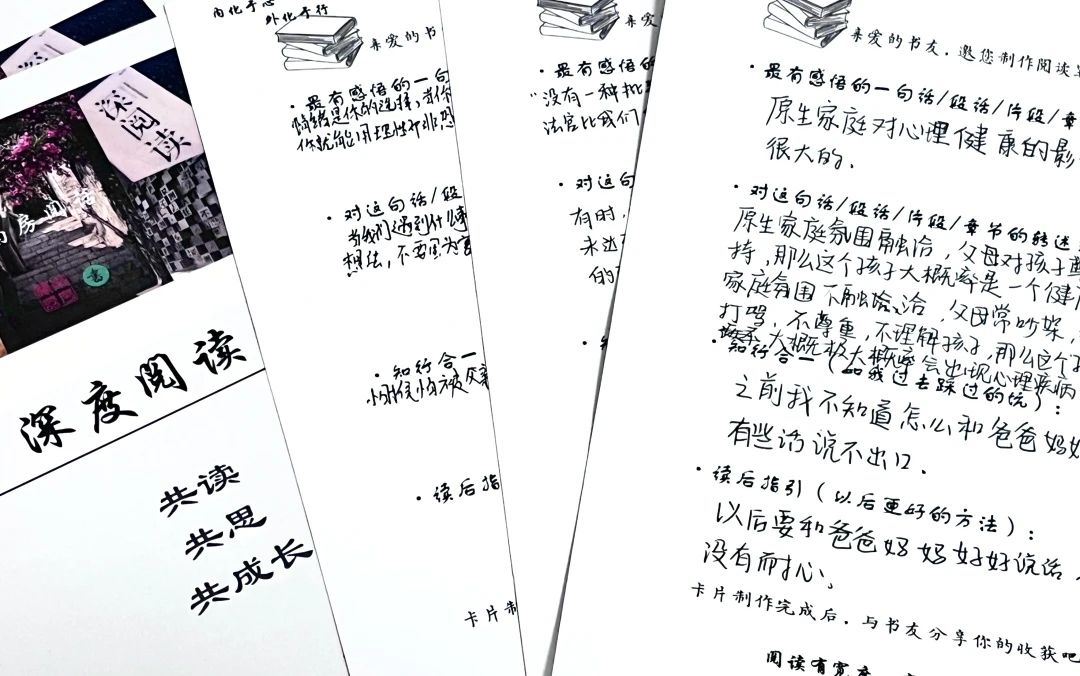 深阅读
书
深度阅读
共读
共思
共成长
内化于心
外化于行
亲爱的书
·最有感悟的一句
情绪是你的选择,当你
你就能用理性而非恐
·对这句话/段
当我们遇到什么事
想法,不要因为害
·知行合一
·读后指
卡片制
·最有感悟的
“没有一种批
法官比我们
·对这句
有时,
永远
的
亲爱的书友,邀您制作阅读
·最有感悟的一句话/段话/片段/章
原生家庭对心理健康的影
很大的.
·对这句话/段话/片段/章节的转述
原生家庭氛围融洽,父母对孩子
持,那么这个孩子大概率是一个健
家庭氛围不融洽,父母常吵架,
打骂,不尊重,不理解孩子,那么这个
大概极大概率会出现心理疾病
·知行合一(如我过去踩过的坑):
之前我不知道怎么和爸爸妈
有些话说不出口.
·读后指引(以后更好的方法):
以后要和爸爸妈妈好好说话,
没有耐心、
卡片制作完成后,与书友分享你的收获吧
阅读有宽度